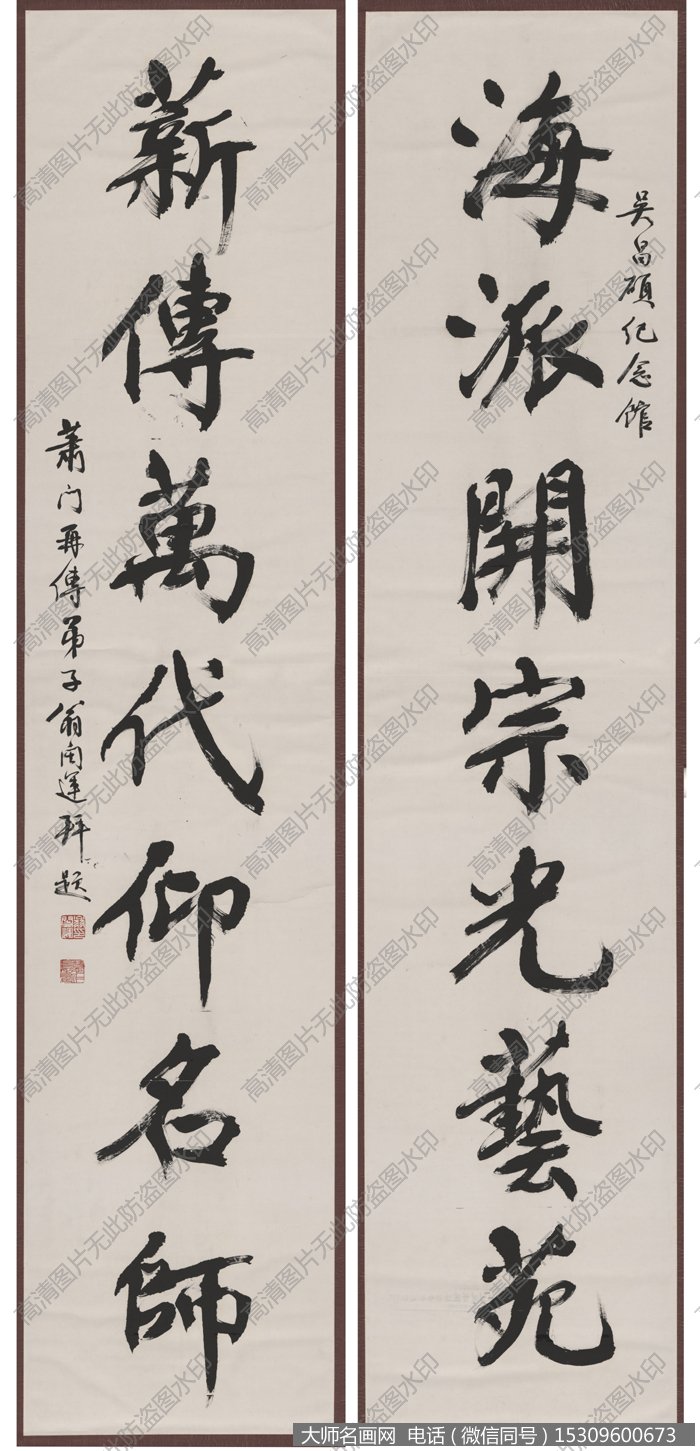 吴昌碩纪念馆
海派開宗光藝苑
薪傳萬代仰名師
蕭门再傳弟子翁闿運拜题
高清图片无此防盗图水印
大师名画网 电话（微信同号）15309600673